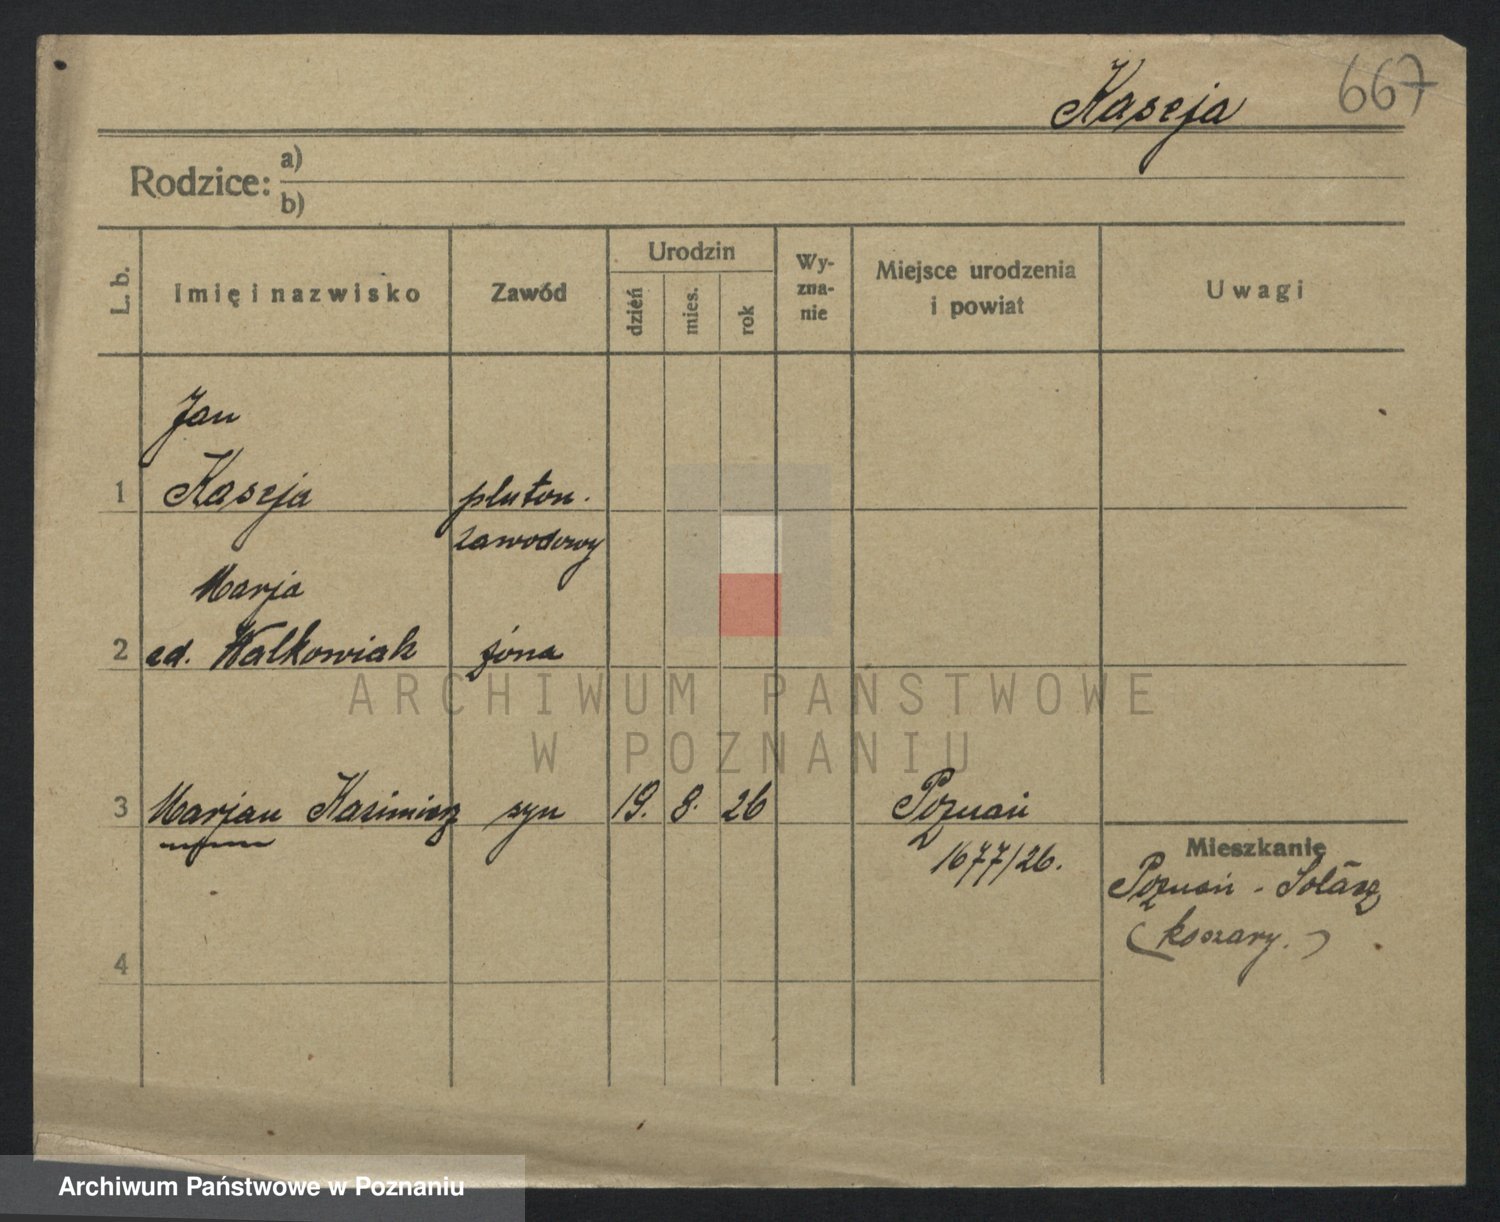 Kaseja
667
Rodzice: a)
b)
L. b.
Imię i nazwisko
Zawód
Urodzin
dzień
mies.
rok
Wy-
zna-
nie
Miejsce urodzenia
i powiat
Uwagi
Jan
1 Kaseja pluton.
zawodowy
Marja
2 Walkowiak żona
ARCHIWUM PAŃSTWOWE
W POZNANIU
3 Marjan Kazimierz syn 19. 8. 26 Poznań
1677/26.
Mieszkanie
Poznań - Sołacz
(koszary.)
4
Archiwum Państwowe w Poznaniu